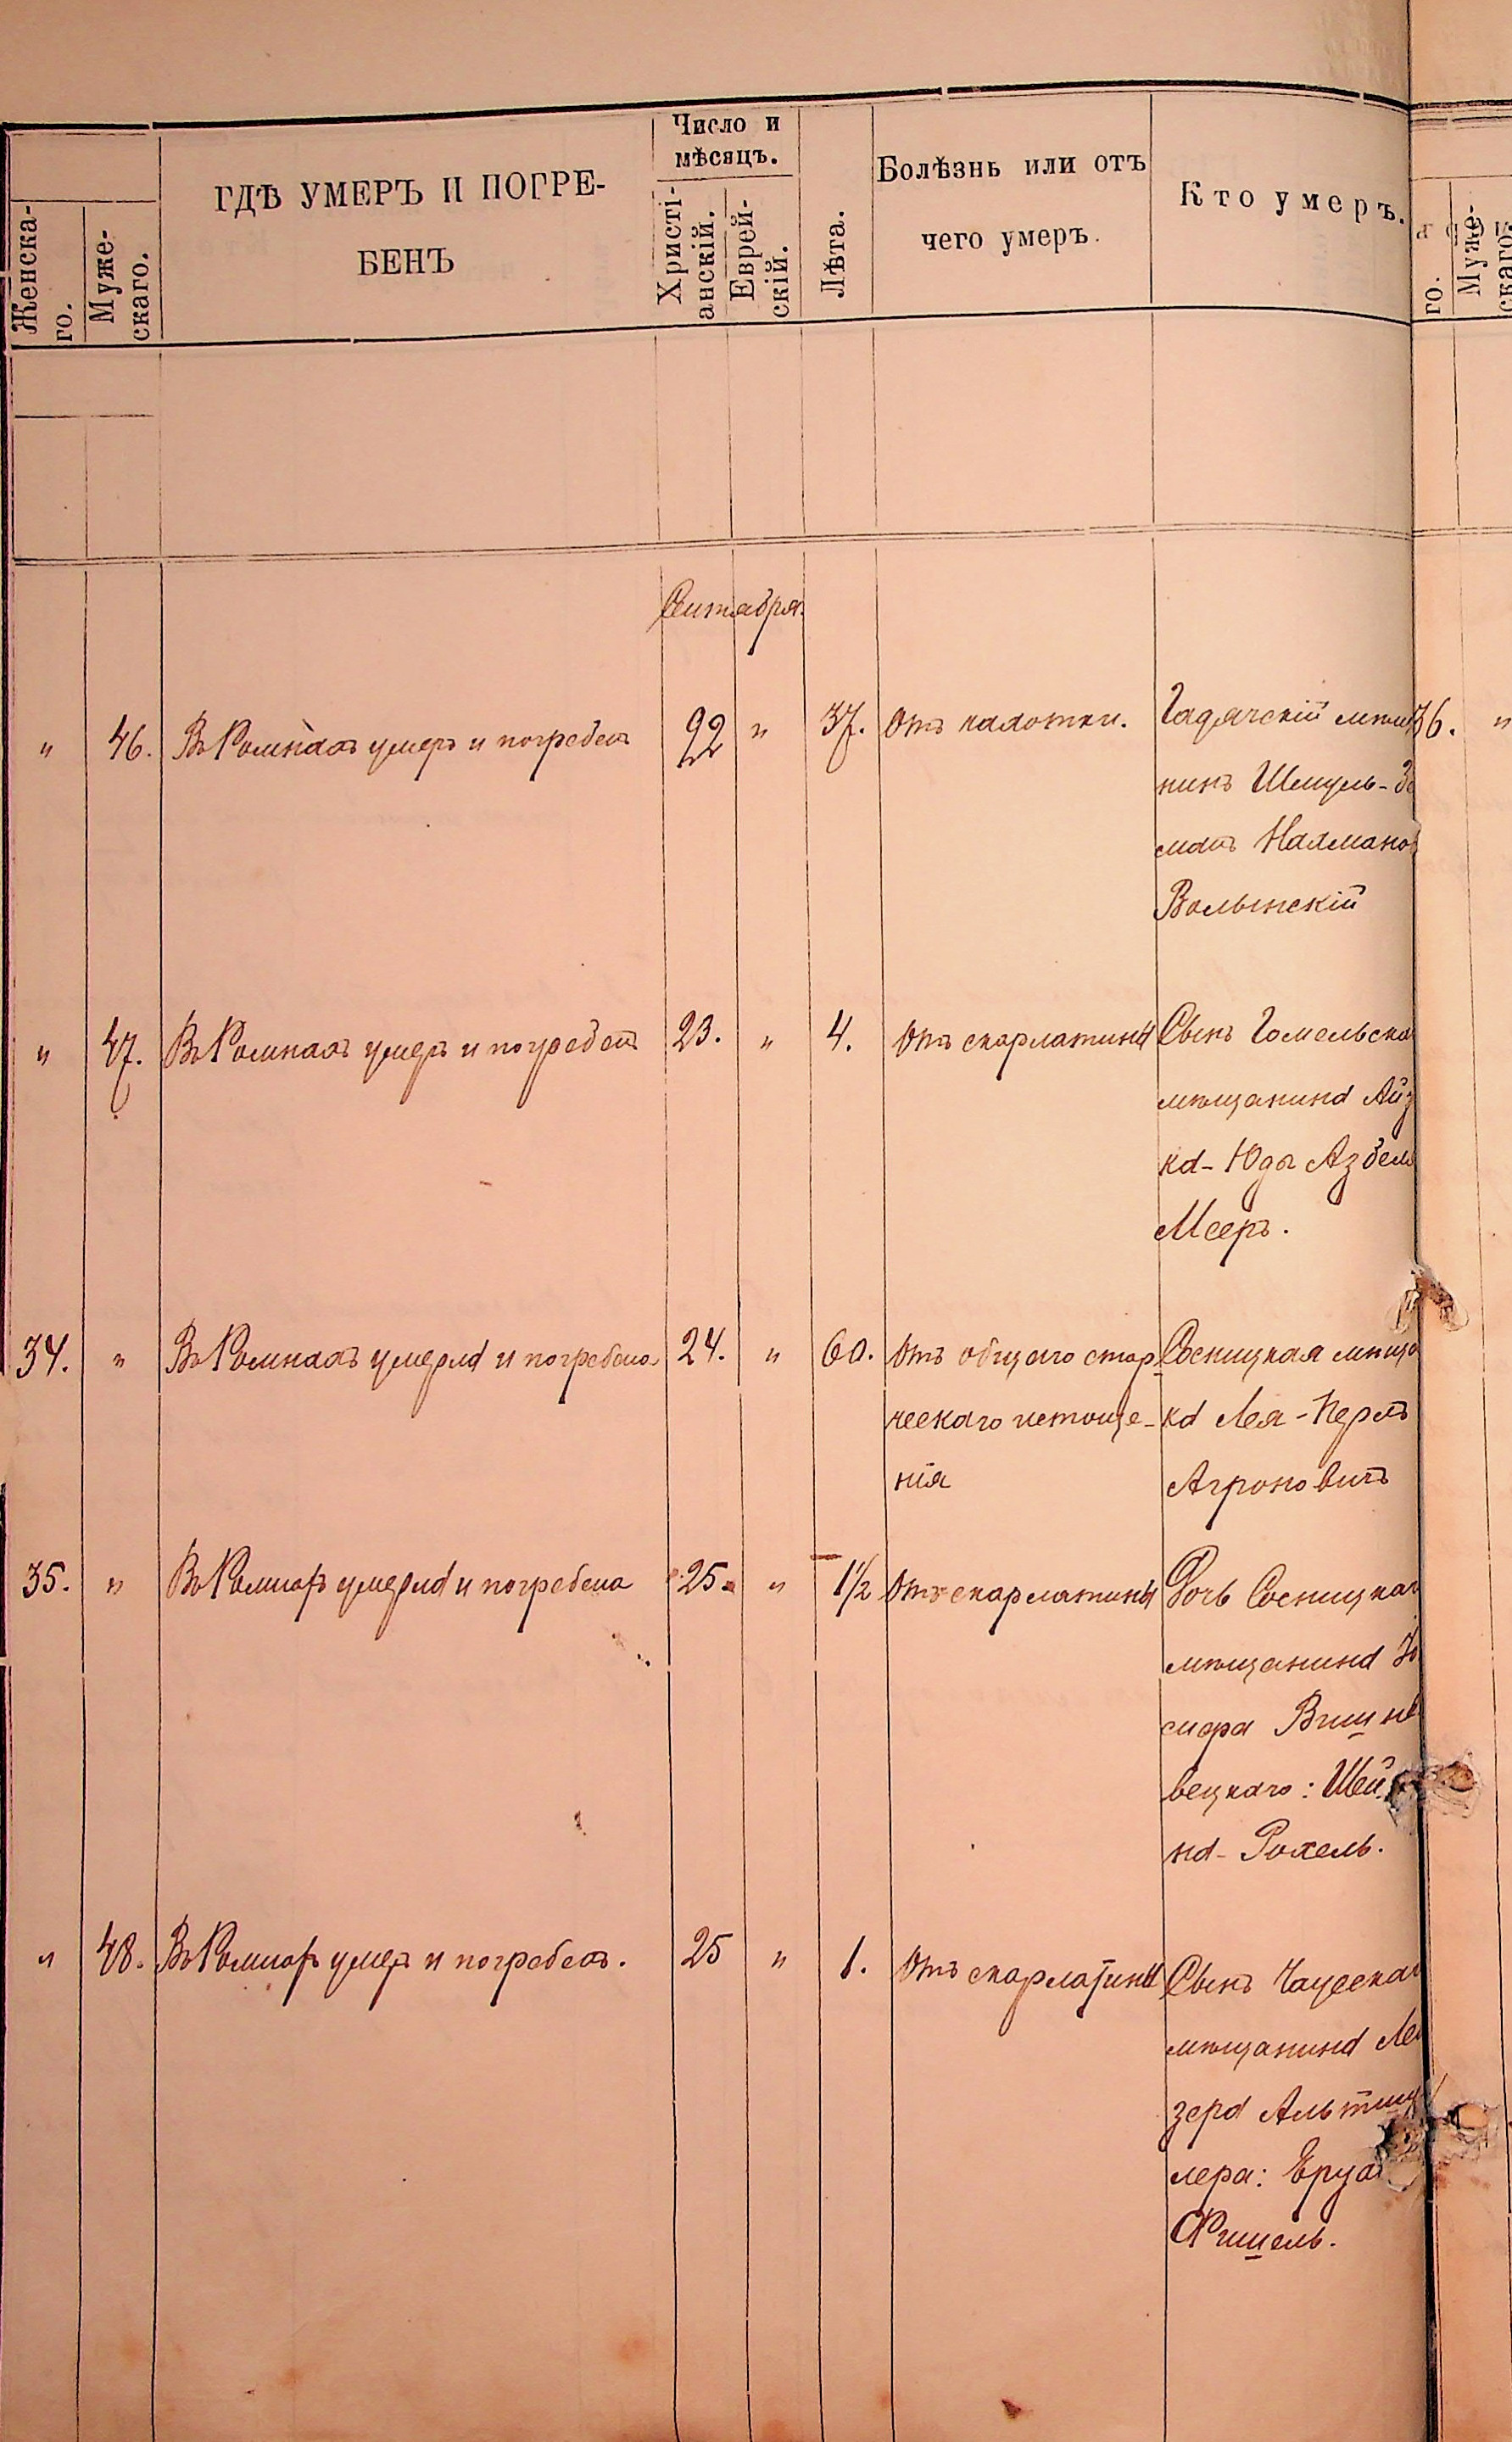 Женска-
го.
Муже-
скаго.
ГДѢ УМЕРЪ И ПОГРЕ-
БЕНЪ
Число и
мѣсяцъ.
Христі-
анскій.
Еврей-
скій.
Лѣта.
Болѣзнь или отъ
чего умеръ.
Кто умеръ.
го.
Муже-
скаго.
Сентября.
" 46. Въ Ромнахъ умеръ и погребенъ 22 " 37. Отъ чахотки. Гадячскій мѣщ
36. "
нинъ Шмуль-
манъ Нахмано
Волынскій
" 47. Въ Ромнахъ умеръ и погребенъ 23. " 4. Отъ скарлатины Сынъ Гомельска
мѣщанина Айз
ка-Юды Азбель
Мееръ.
34. " Въ Ромнахъ умерла и погребена 24. " 60. Отъ общаго стар- Сосницкая мѣща
ческаго истоще- ка Лея-Перлъ
нія Агроновичъ
35. " Въ Ромнахъ умерла и погребена 25. " 1½ Отъ скарлатины Дочь Сосницкаг
мѣщанина
Вишне
вецкаго: Шей
на-Рохель.
" 48. Въ Ромнахъ умеръ и погребенъ. 25 " 1. Отъ скарлатины Сынъ Чаусскаг
мѣщанина Лей
зера Альтшу
лера:
Фишель.